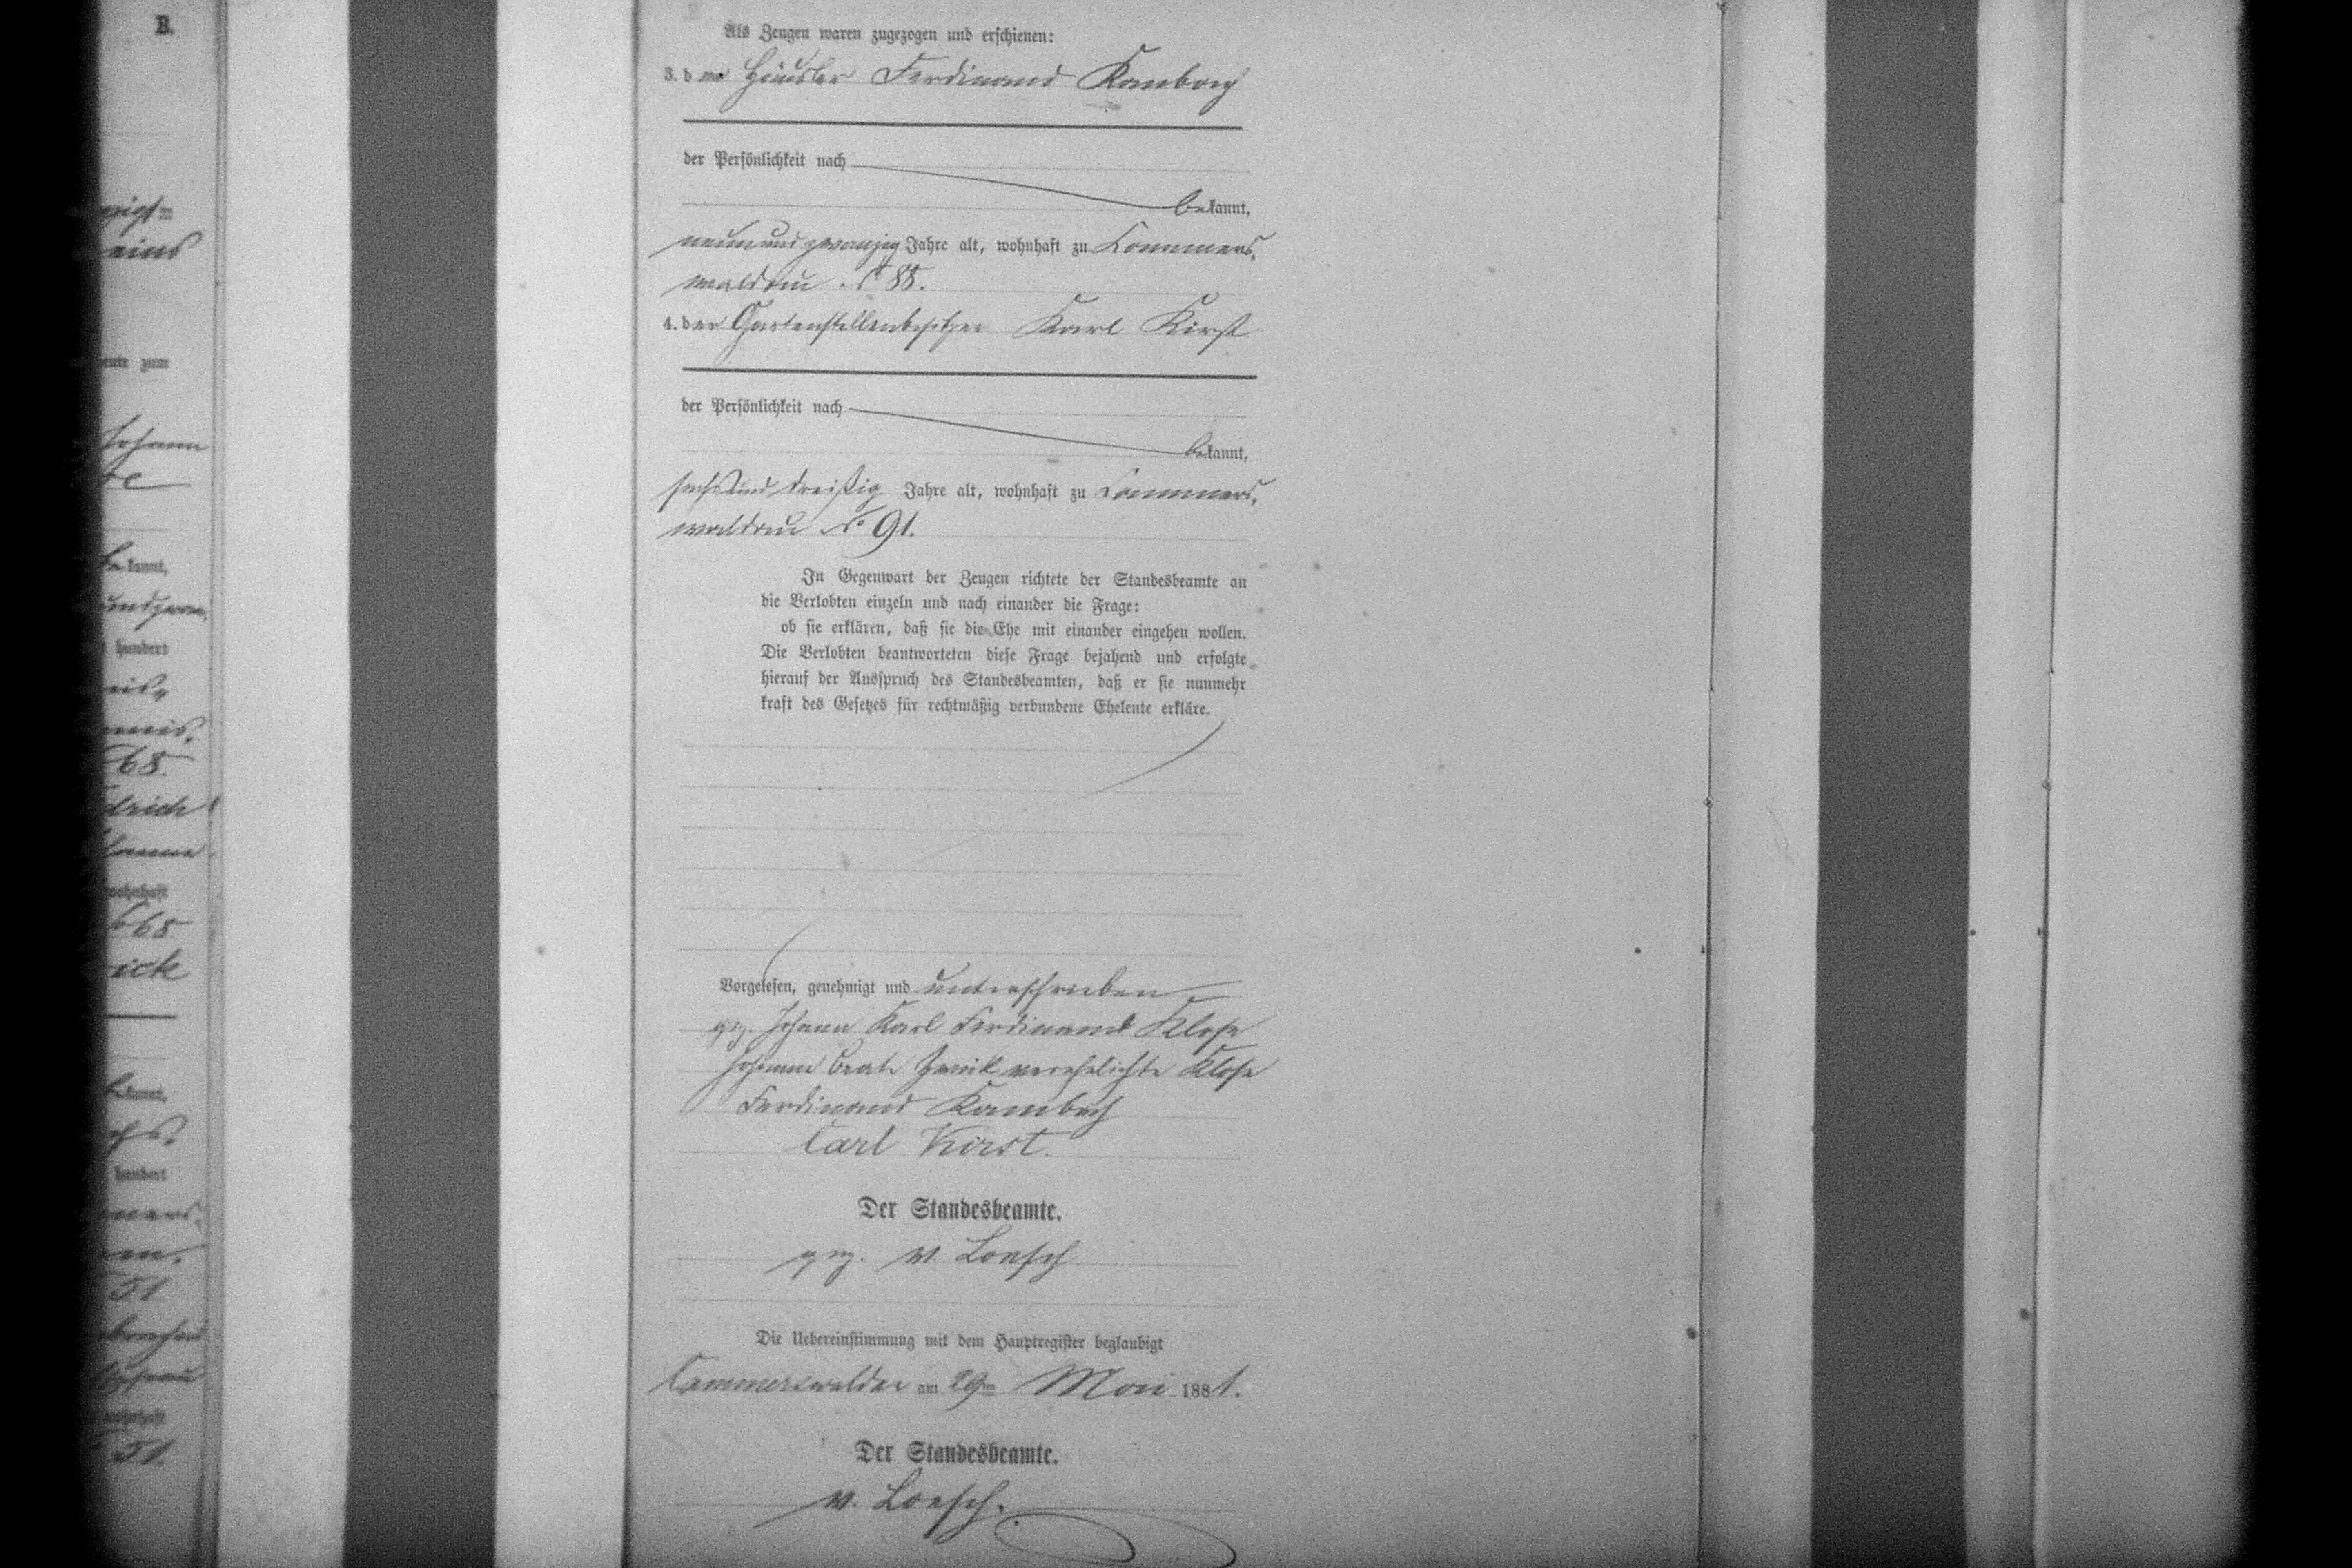 B.
eins
Johann
be kannt,
hundert
65.
drich
wohnhaft
65
rick
hundert
51
wohnhaft
51.
Als Zeugen waren zugezogen und erschienen:
3. der Häusler Ferdinand Kambach
der Persönlichkeit nach
bekannt,
neunundzwanzig Jahre alt, wohnhaft zu Cammers-
waldau No 88.
4. der Gartenstellenbesitzer Karl Kirst
der Persönlichkeit nach
bekannt,
sechsunddreißig Jahre alt, wohnhaft zu Cammers-
waldau No 91.
In Gegenwart der Zeugen richtete der Standesbeamte an
die Verlobten einzeln und nach einander die Frage:
ob sie erklären, daß sie die Ehe mit einander eingehen wollen.
Die Verlobten beantworteten diese Frage bejahend und erfolgte
hierauf der Ausspruch des Standesbeamten, daß er sie nunmehr
kraft des Gesetzes für rechtmäßig verbundene Eheleute erkläre.
Vorgelesen, genehmigt und unterschrieben
gez. Johann Karl Ferdinand Klose
Johanne Beate verehelichte Klose
Ferdinand Kambach
Carl Kirst.
Der Standesbeamte.
gez. v. Loesch
Die Uebereinstimmung mit dem Hauptregister beglaubigt
Cammerswaldau am 29ten Mai 1881.
Der Standesbeamte.
v. Loesch.